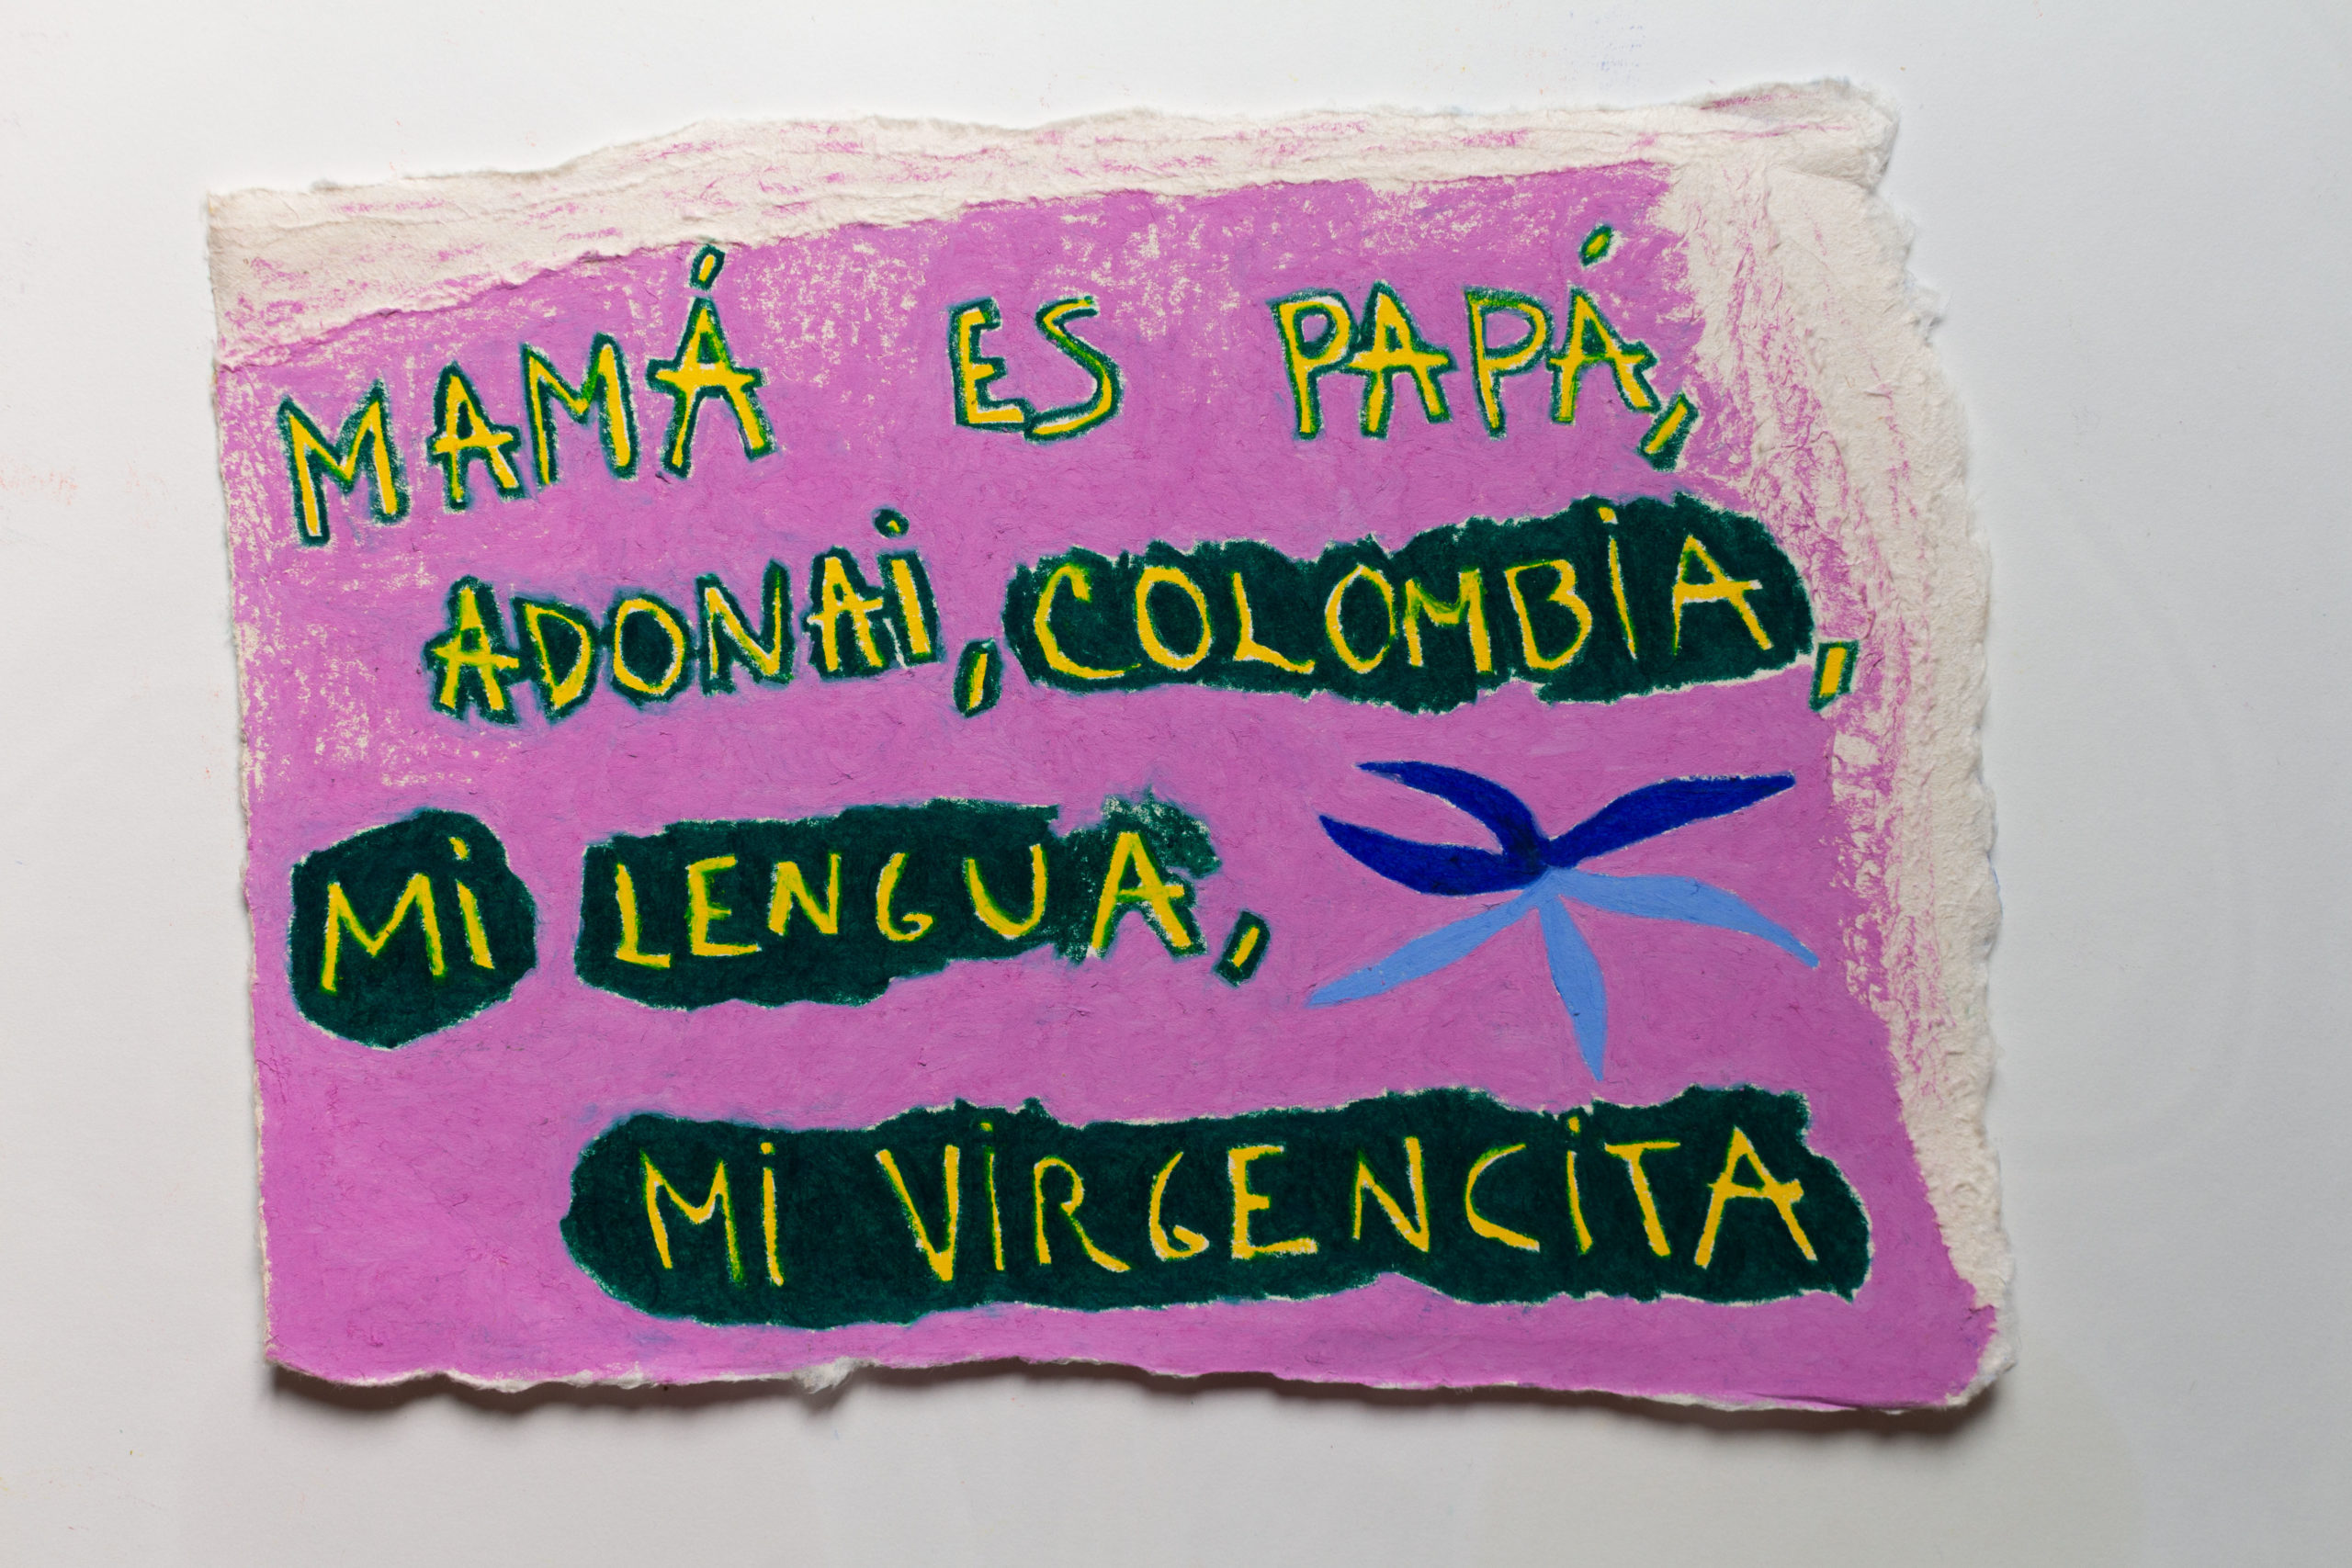 MAMÁ ES PAPÁ,
ADONAI, COLOMBIA,
MI LENGUA,
MI VIRGENCITA